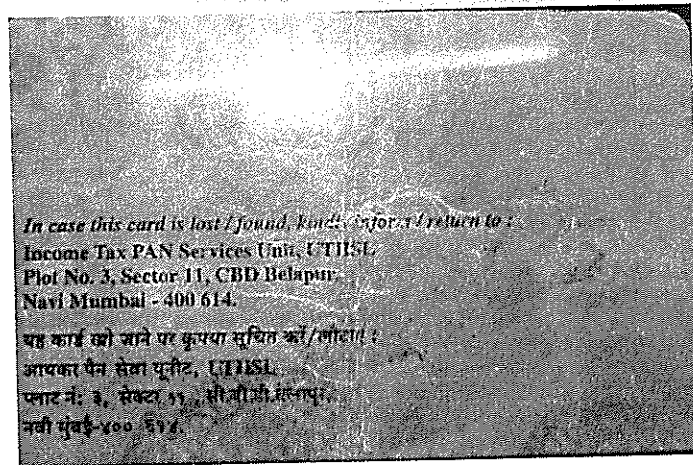 In case this card is lost / found, kindly inform / return to :
Income Tax PAN Services Unit, UTIISL
Plot No. 3, Sector 11, CBD Belapur,
Navi Mumbai - 400 614.
यह कार्ड खो जाने पर कृपया सूचित करें/लौटाएं :
आयकर पैन सेवा यूनीट, UTIISL
प्लाट नं: ३, सेक्टर ११, सी.बी.डी.बेलापुर,
नवी मुंबई-४०० ६१४.